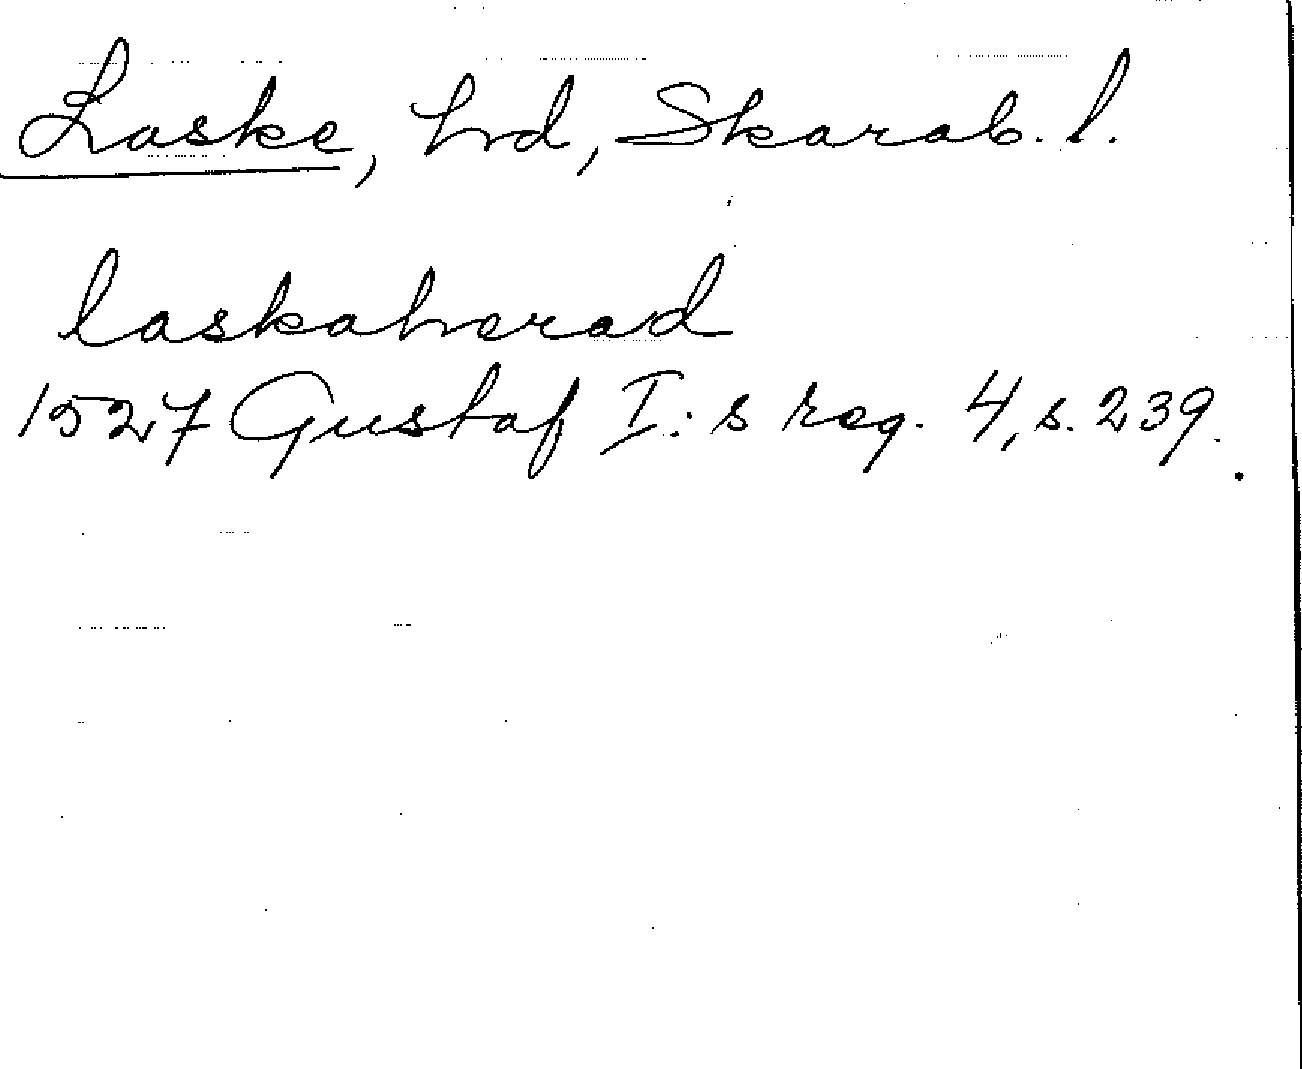 Laske, hrd, Skarab. l.
laskaherad
1527 Gustaf I:s reg. 4, s. 239.